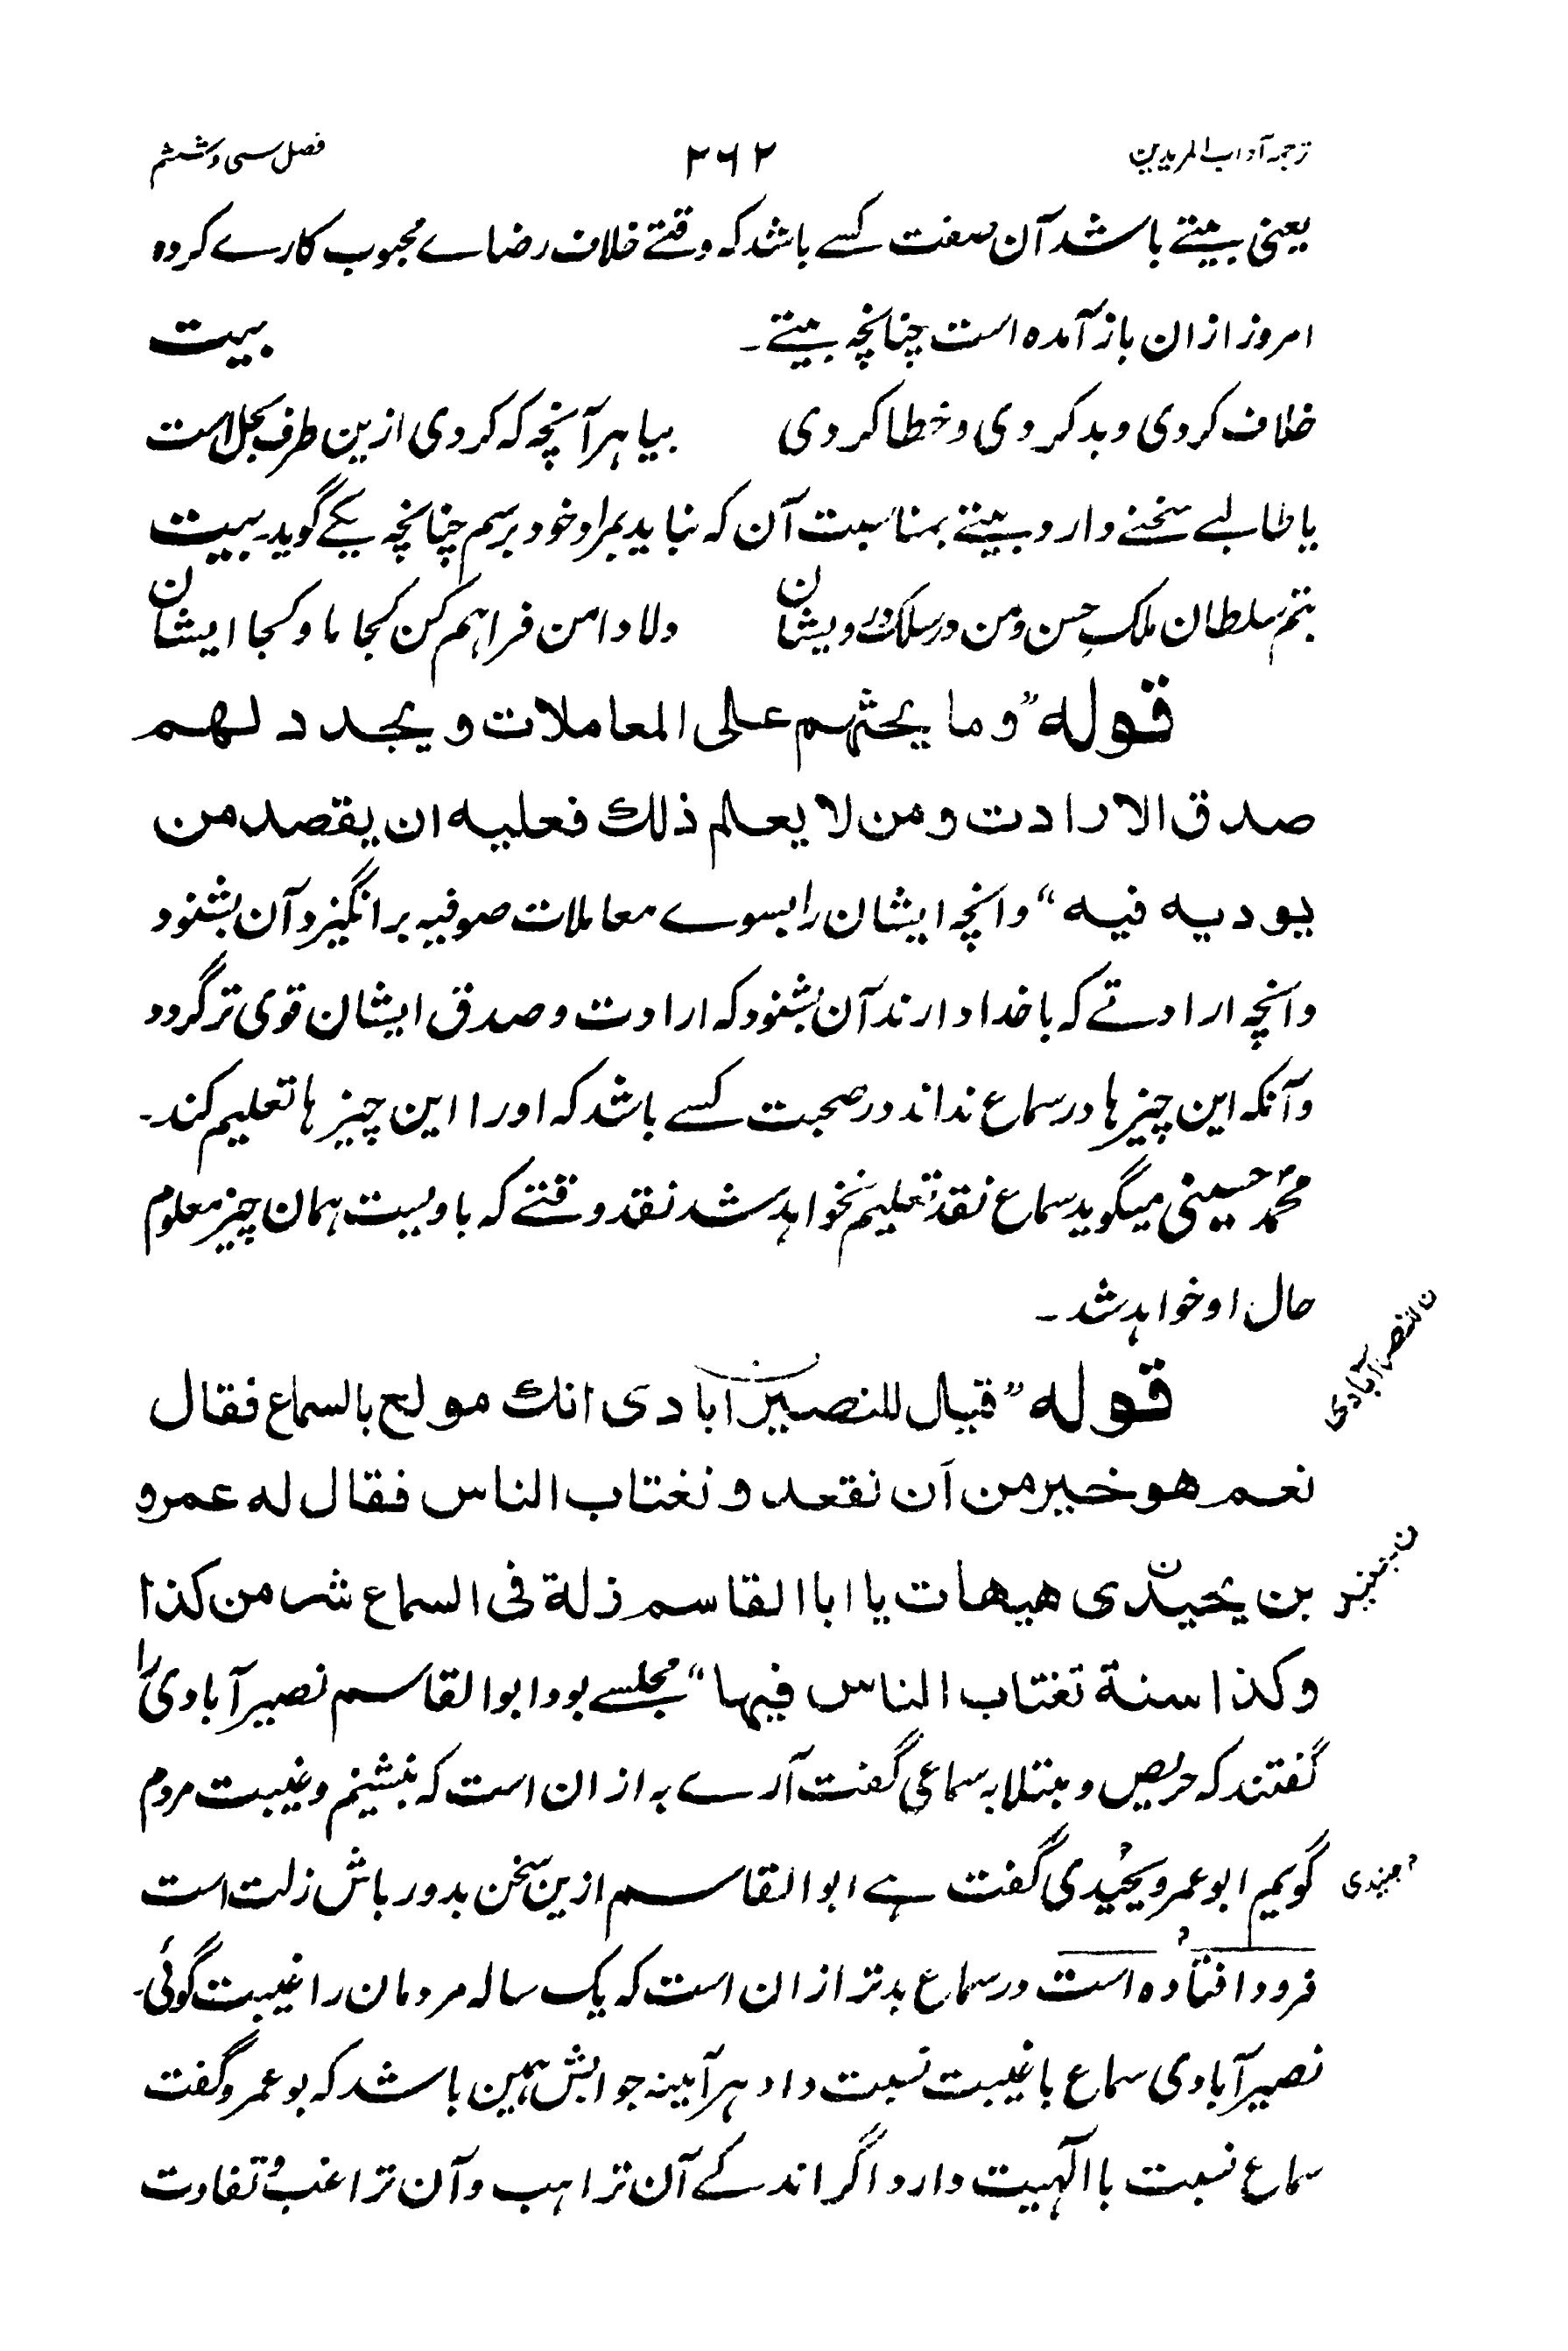 ترجمہ آداب المریدین ۲۶۲ فصل سی و ششم
یعنی بیتے باشد آن صفت کسے باشد کہ وقتے خلاف رضاے محبوب کارے کردہ
امروز ازان باز آمدہ است چنانچہ بیتے۔ بیت
خلاف کردی و بد کردی و خطا کردی بیا ہر آنچہ کہ کردی ازین طرف بحل است
یا طالبے سخنے دارد بیتے بمناسبت آن کہ نباید بمراد خود برسم چنانچہ یکے گوید۔ بیت
بتم سلطان ملکِ حسن و من در سلک درویشان دلا دامن فراہم کن کجا ما و کجا ایشان
قولہ ”وما یحثہم علی المعاملات و یجدد لہم
صدق الارادت ومن لا یعلم ذلك فعلیہ ان یقصد من
یودیہ فیہ“ و انچہ ایشان را بسوے معاملات صوفیہ بر انگیزد آن بشنود
و انچہ ارادتے کہ با خدا دارند آن بشنود کہ ارادت و صدق ایشان قوی تر گردد
و آنکہ این چیزہا در سماع نداند در صحبت کسے باشد کہ اورا این چیزہا تعلیم کند۔
محمد حسینی میگوید سماع نقد تعلیم نخواہد شد نقد وقتے کہ باویست ہمان چیز معلوم
حال او خواہد شد۔
قولہ ”قیل للنصیر آبادی انك مولح بالسماع فقال
ن النصر آبادی
نعم ھو خیر من اَن نقعد و نغتاب الناس فقال لہ عمرو
بن یحیدی ھیھات یا ابا القاسم زلة فی السماع شر من کذا
و کذا سنة تغتاب الناس فیہا“ مجلسے بود ابو القاسم نصیر آبادی را
گفتند کہ حریص و مبتلا بہ سماعی گفت آرے بہ ازان است کہ بنشینم و غیبت مردم
گویم ابو عمرو یحیدی گفت ہے ابو القاسم ازین سخن بدور باش زلت است
فرود افتادہ است در سماع بدتر ازان است کہ یک سالہ مردمان را غیبت گوئی۔
نصیر آبادی سماع با غیبت نسبت داد ہر آیینہ جوابش ہمین باشد کہ بو عمرو گفت
سماع نسبت با الٰہیت دارد اگر اندکے آن ترا ہب و آن ترا غب تفاوت